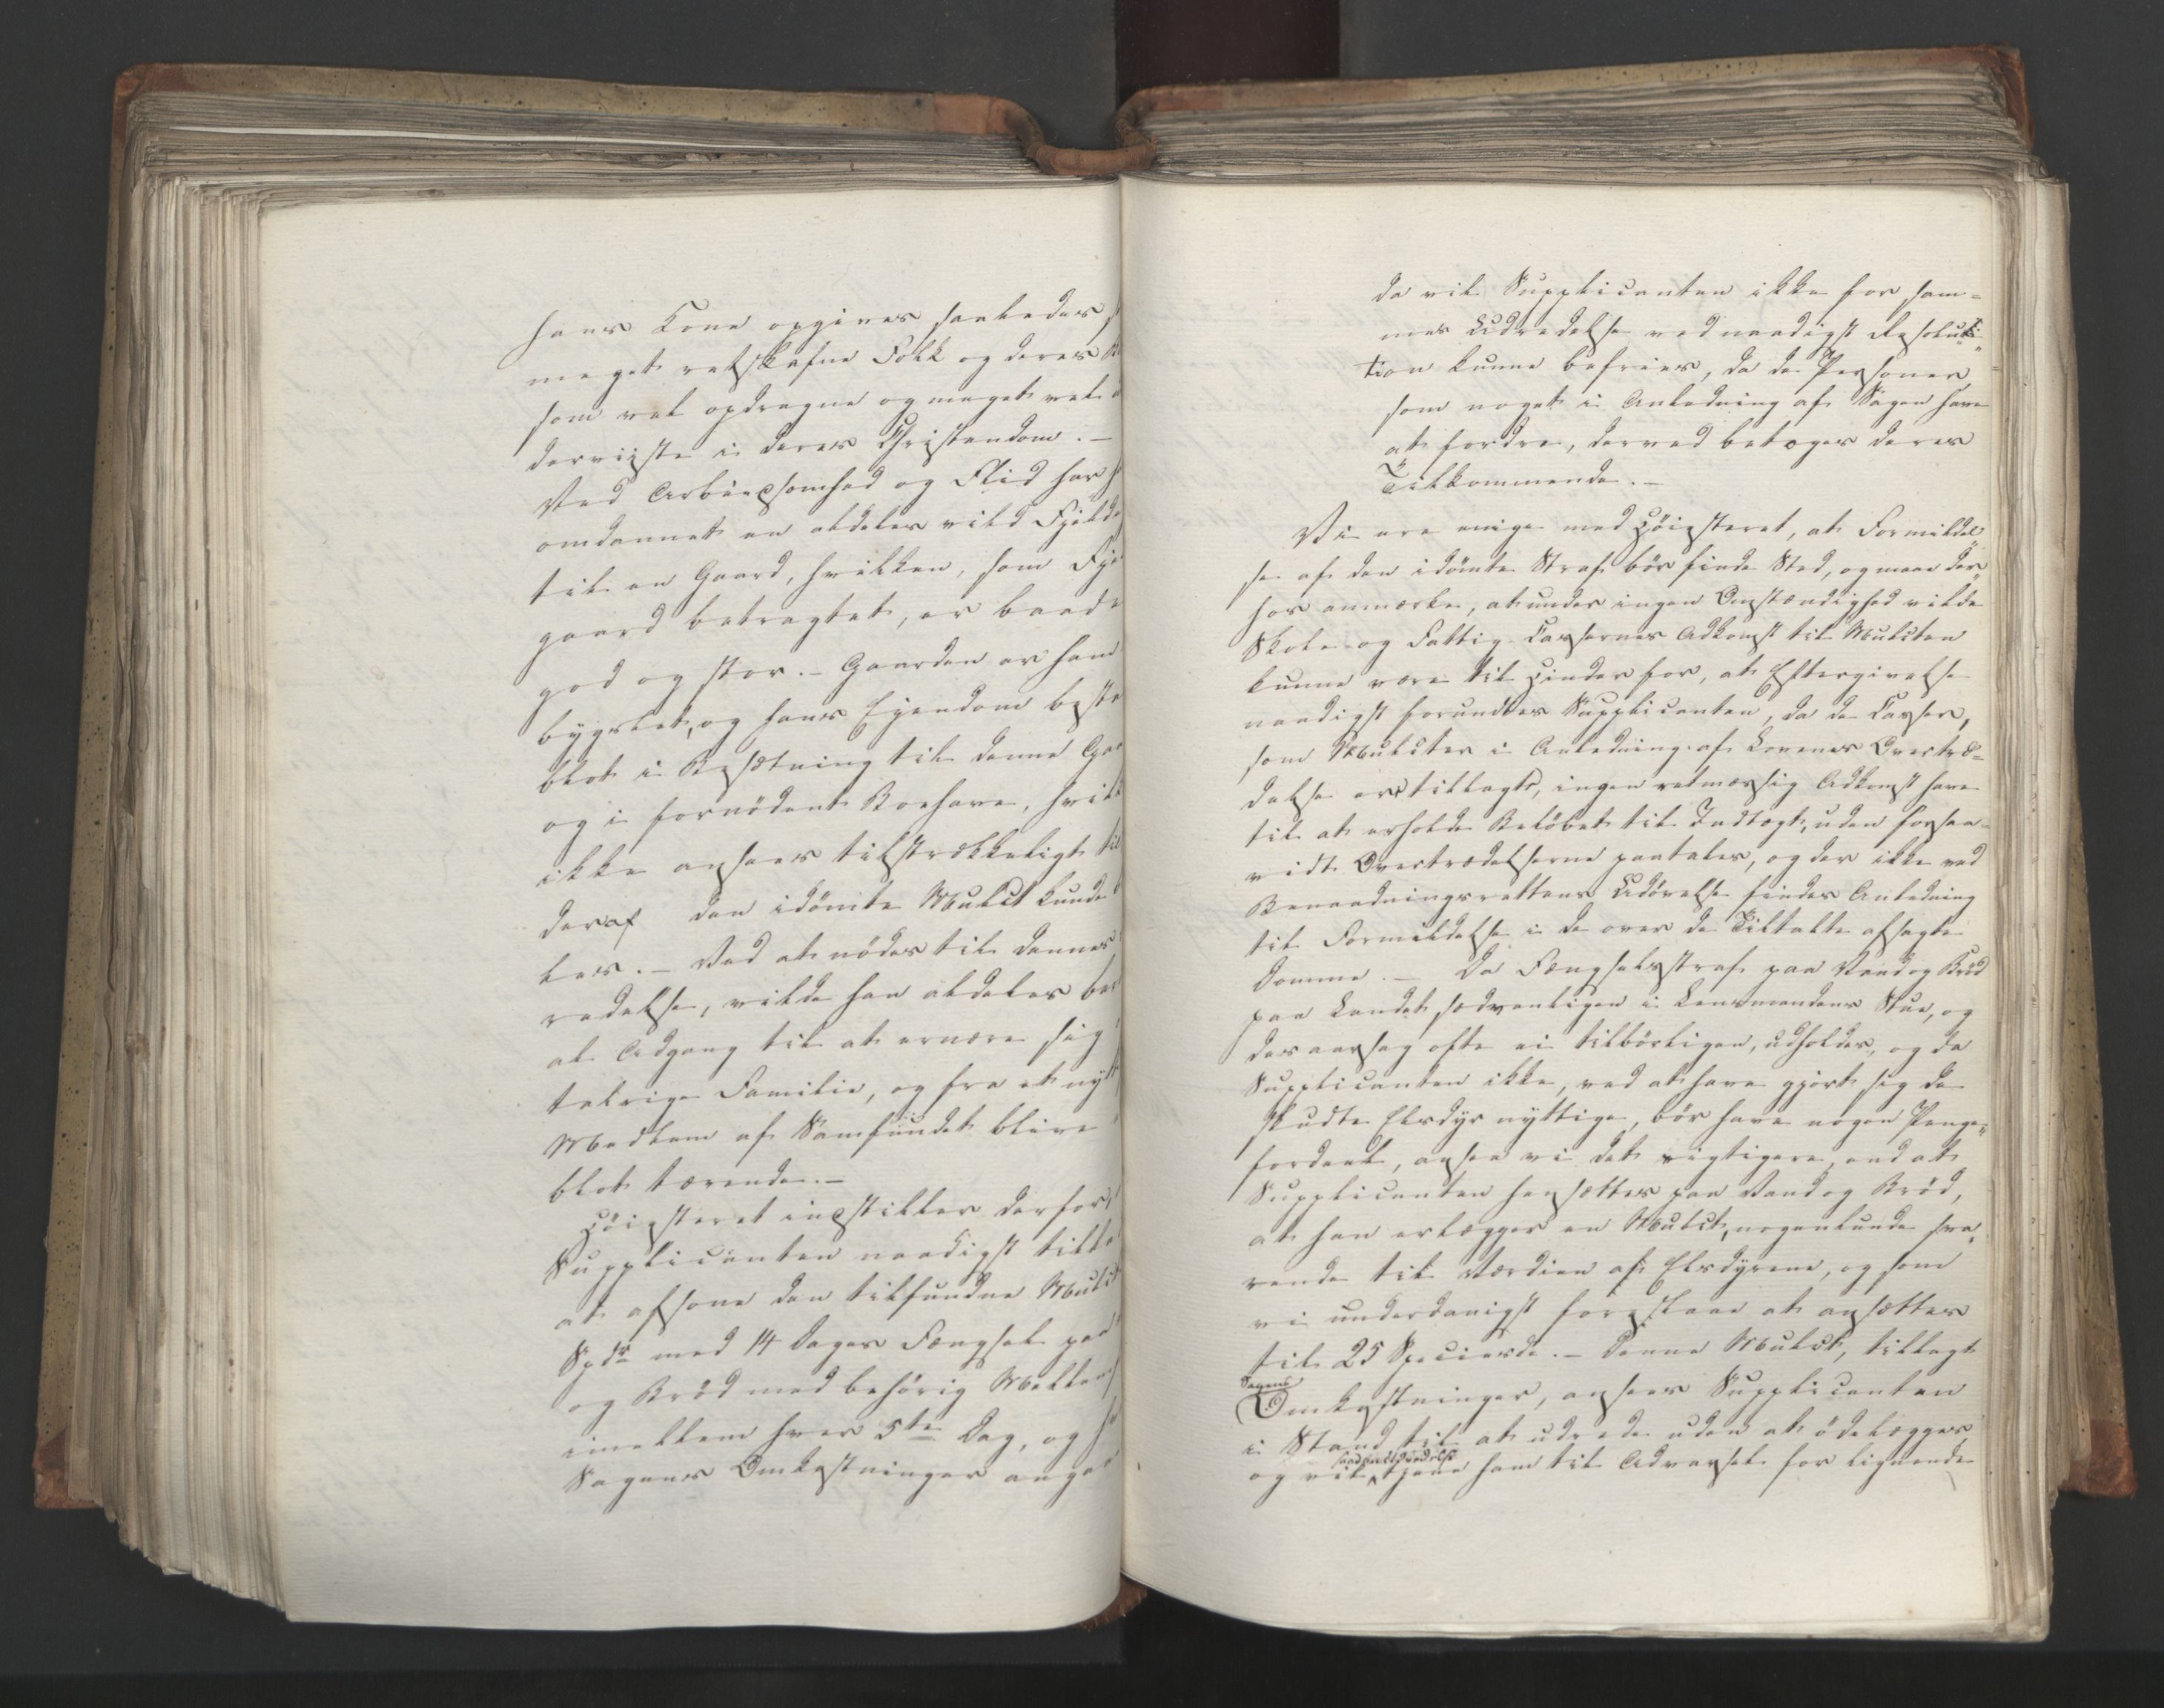 hans Kone opgives saaledes
meget retskafne Folk og deres
som vel opdragne og meget vel
derviiste i deres Christendom. –
Ved Arbeidsomhed og Flid har
omdannet en aldeles vild Fjeld
til en Gaard, hvilken, som
gaard betragtet, er baade
god og stor. – Gaarden er ham
bygslet, og hans Ejendom
blot i Besætning til denne
og i fornødent Boehave,
ikke ansees tilstrækkeligt til
deraf den idømte Mulct kunde
les. – Ved at nødes til dennes
redelse, vilde han aldeles
al Adgang til at ernære sig
talrige Familie, og fra et
Medlem af Samfundet blive
blot tærende. –
Høiesteret indstiller derfor,
Supplicanten naadigst
at afsone den tilfundne Mulct
Spdr med 14 Dages Fængsel paa
og Brød med behörig
imellem hver 5te Dag, og
Sagens Omkostninger
da vil Supplicanten ikke for sam-
mes Udredelse ved naadigst Resoluti-
tion kunne befries, da de Personer,
som noget i Anledning af Sagen have
at fordre, derved betoges deres
Tilkommende. –
Vi ere enige med Höiesteret, at Formildel
se af den idömte Straf bör finde Sted, og maae der
hos anmærke, at under ingen Omstændighed vilde
Skole- og Fattig-Cassernes Adkomst til Mulcten
kunne være til Hinder for, at Eftergivelse
naadigst forundtes Supplicanten, da de Casser,
som Mulcter i Anledning af Lovenes Overtræ-
delse ere tillagte, ingen retmæssig Adkomst have
til at erholde Belöbet til Indtægt, uden forsaa-
vidt Overtrædelserne paatales, og der ikke ved
Benaadningsrettens Udövelse findes Anledning
til Formildelse i de over de Tiltalte afsagte
Domme. – Da Fængselsstraf paa Vand og Bröd
paa Landet sædvanligen i Lensmandens Stue, og
desaarsag ofte ei tilbörligen, udholdes, og da
Supplicanten ikke, ved at have gjort sig de
skudte Elsdyr nyttige, bör have nogen Penge-
fordeel, ansee vi det rigtigere, end at
Supplicanten hensættes paa Vand og Bröd,
at han erlægger en Mulct, nogenlunde sva-
rende til Værdien af Elsdyrene, og som
vi underdanigst foreslaae at ansættes
til 25 Speciesd. – Denne Mulct, tillagt
Sagens
Omkostninger, ansees Supplicanten
i Stand til at udrede uden at ödelægges,
og vil tjene ham til Advarsel for lignende